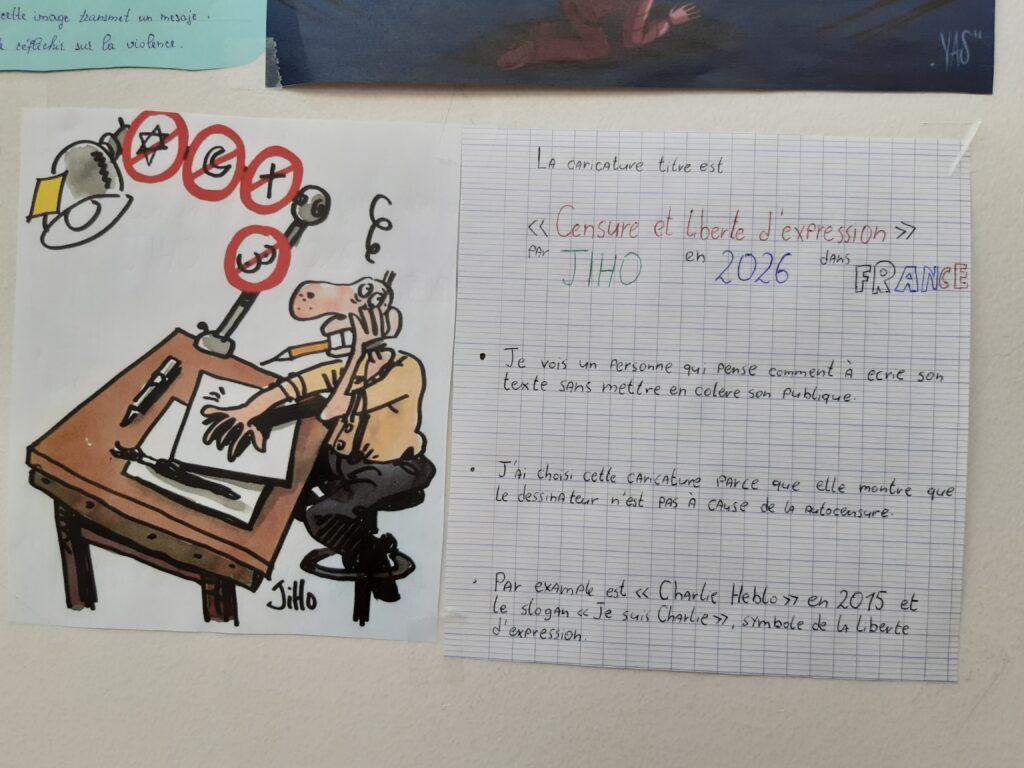 cette image transmet un mesaje.
réflechir sur la violence.
.YAS"
JiHo
LA CARICATURE TITRE EST
« Censure et liberte d'expression »
PAR JIHO en 2026 dans FRANCE
• Je vois un personne qui pense comment à ecrie son
texte sans mettre en colère son publique.
• J'ai choisi cette caricature parce que elle montre que
le dessinateur n'est pas à cause de la autocensure.
• Par example est « Charlie Heblo » en 2015 et
le slogan « Je suis Charlie », symbole de la liberte
d'expression.